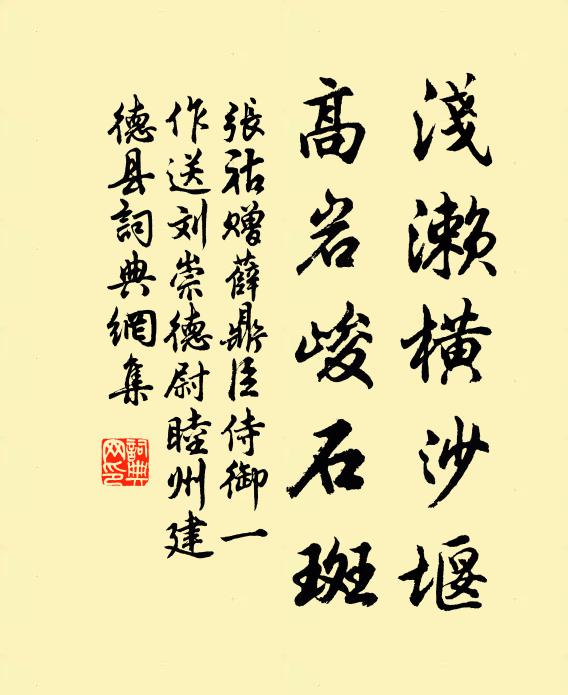 淺濑橫沙堰
高岩峻石斑
張祜赠薛鼎臣侍御一
作送刘崇德尉睦州建
德县詞典網集
詞典网印